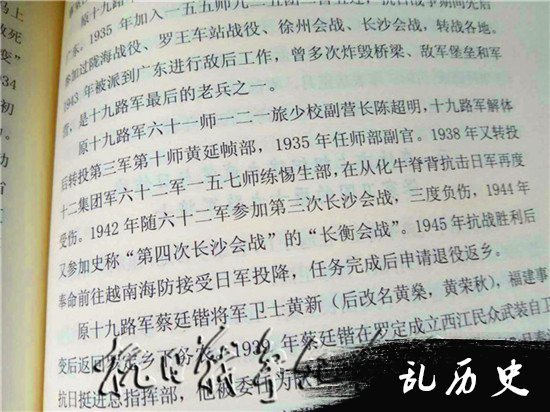 广东，1935年加入一五五师九二五团
参加过陇海战役、罗王车站战役、徐州会战、长沙会战，转战各地。
1943年被派到广东进行敌后工作，曾多次炸毁桥梁、敌军堡垒和军
营，是十九路军最后的老兵之一。
原十九路军六十一师一二一旅少校副营长陈超明，十九路军解体
后转投第三军第十师黄延帧部，1935年任师部副官。1938年又转投
十二集团军六十二军一五七师练惕生部，在从化牛脊背抗击日军再度
受伤。1942年随六十二军参加第三次长沙会战，三度负伤，1944年
又参加史称“第四次长沙会战”的“长衡会战”。1945年抗战胜利后
奉命前往越南海防接受日军投降，任务完成后申请退役返乡。
原十九路军蔡廷锴将军卫士黄新（后改名黄燊，黄荣秋），福建事
变后返回 年蔡廷锴在罗定成立西江民众武装自卫
抗日挺进总指挥部，他被委任为
死
变”
34
初
乱历史